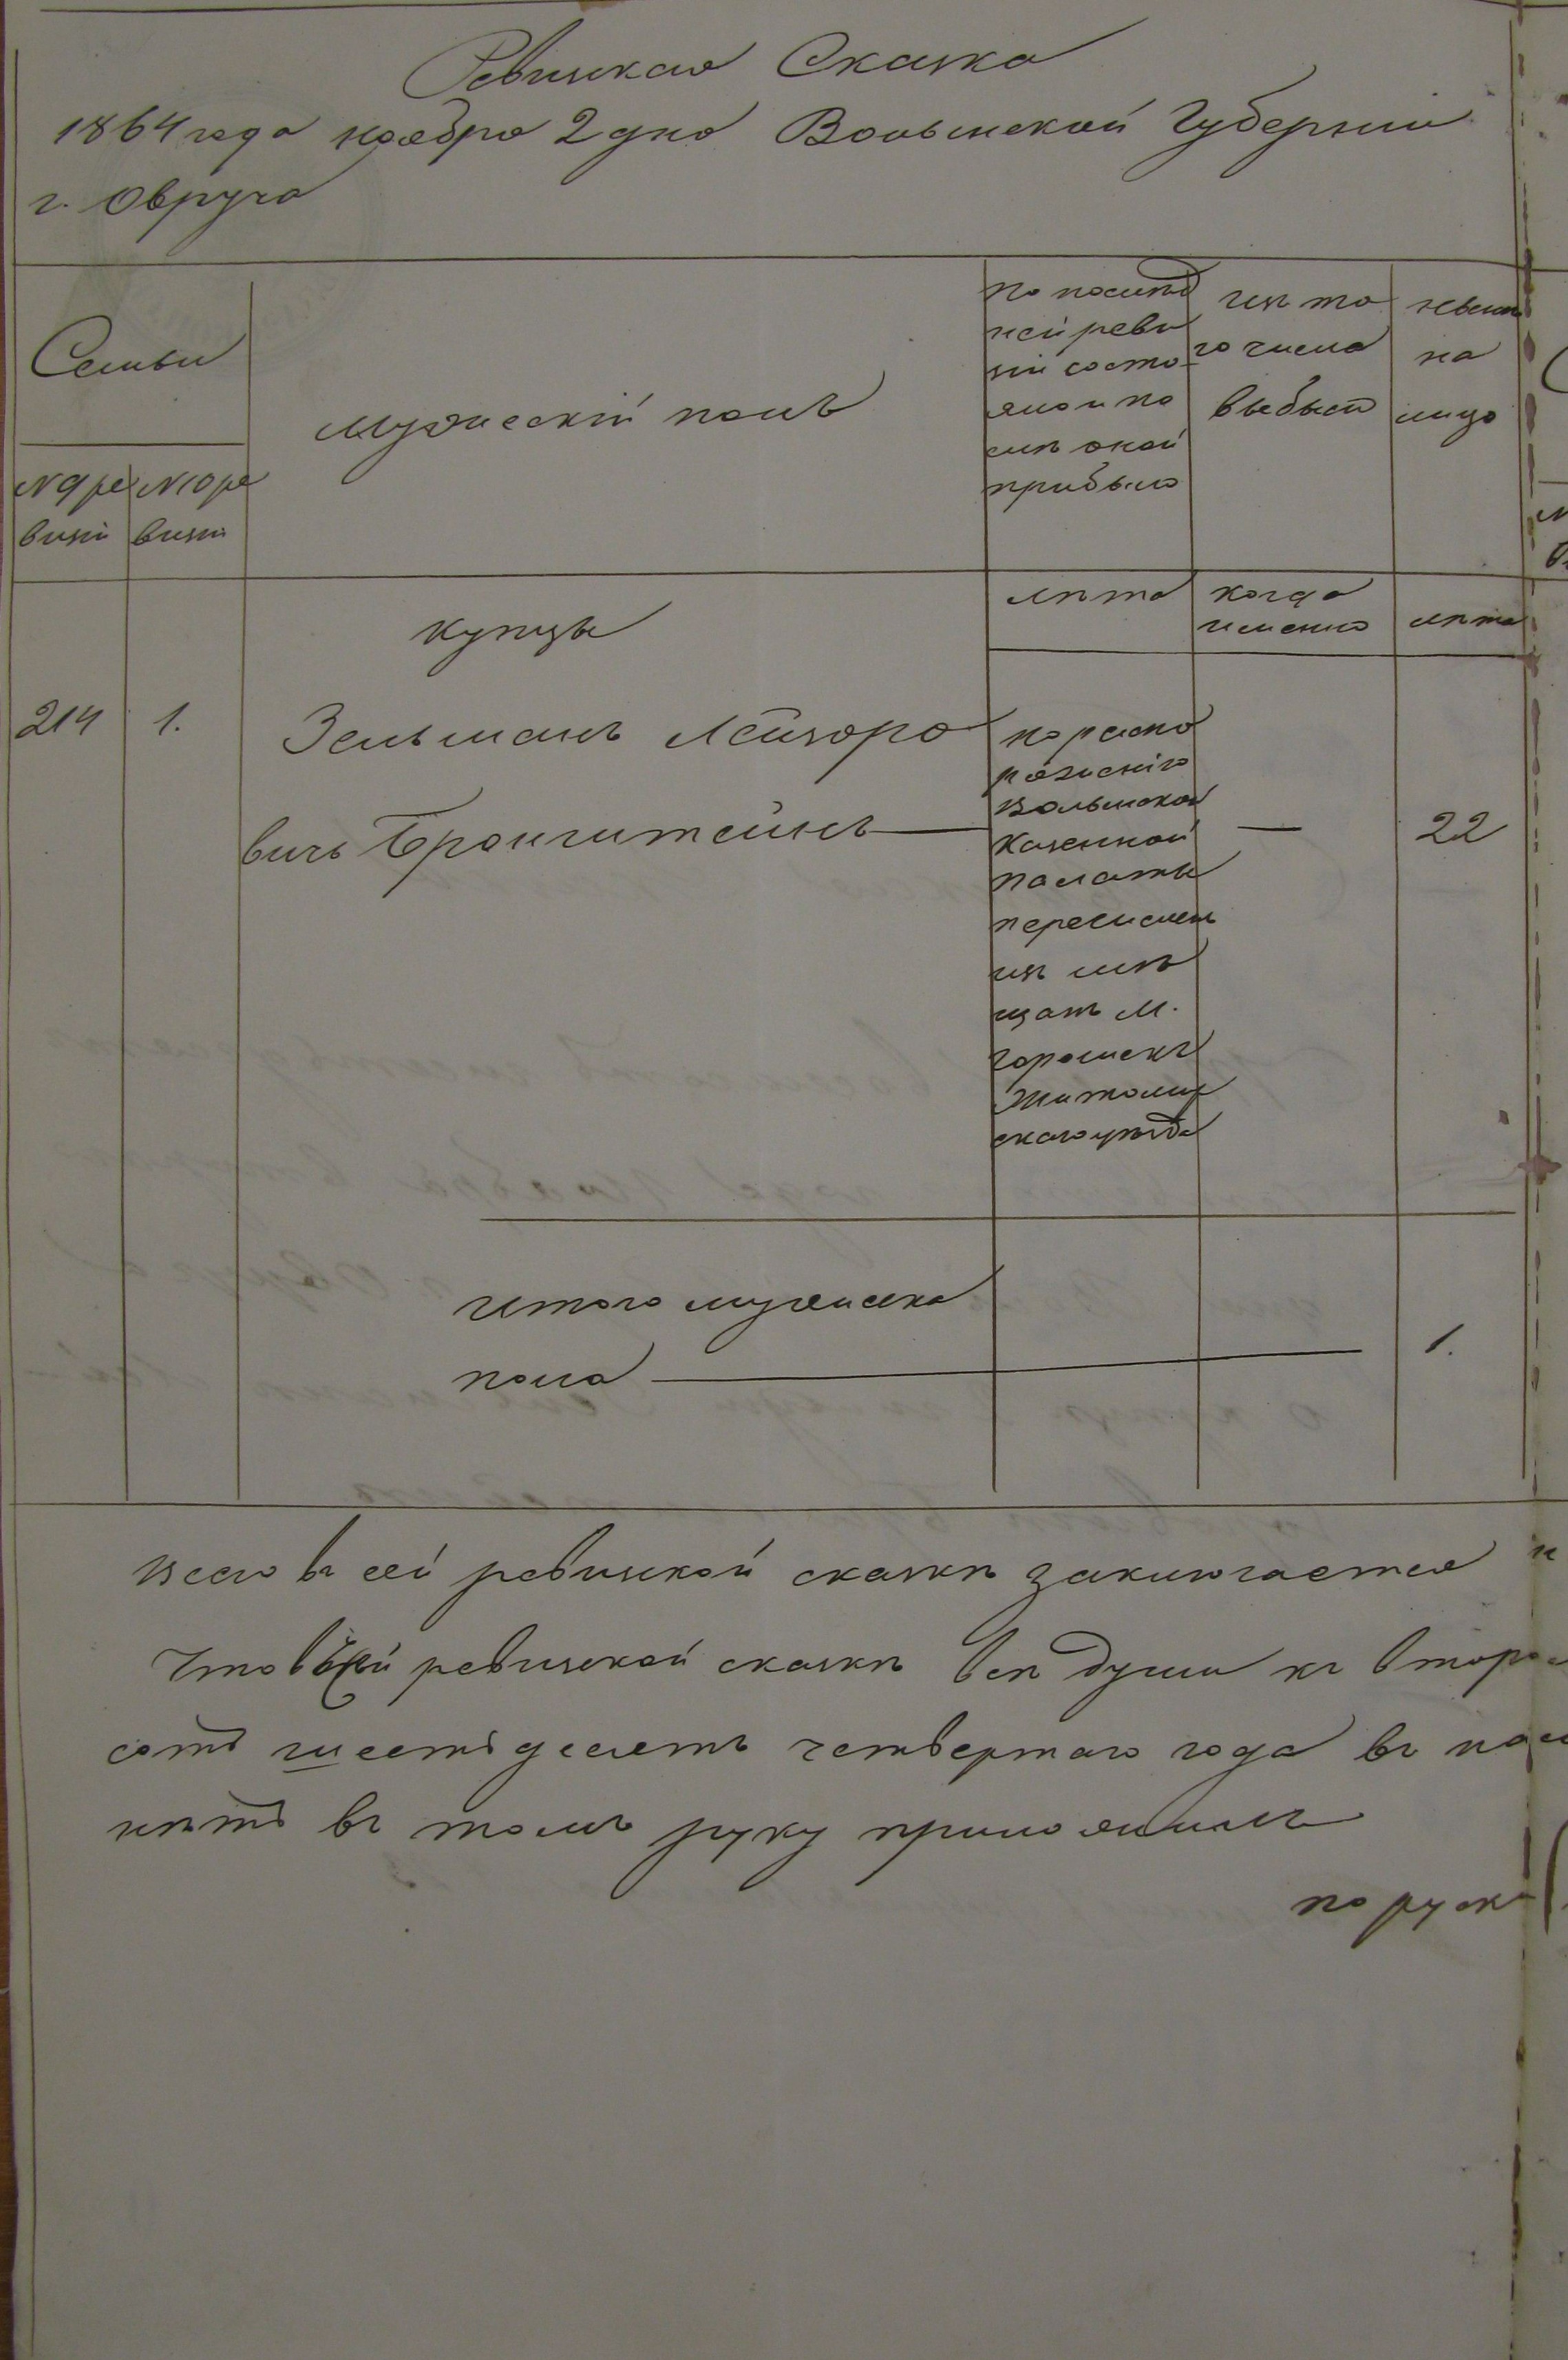 Ревизская Сказка
1864 года ноября 2 дня Волынской Губерніи
г. Овруча
Семьи
№ 9 ре
визіи
№ 10 ре
визіи
Мужескій полъ
по послѣд
ней реви
зіи состо
яло и по
слѣ оной
прибыло
изъ то
го числа
выбыло
нынѣ
на
лицо
лѣта
когда
именно
лѣта
купцы
214
1.
Зельманъ Лейзоро
вичъ Бронштейнъ
по распо
ряженію
Волынской
Казенной
Палаты
перечислен
изъ мѣ
щанъ М.
Горошекъ
Житомир
скаго уѣзда
—
22
итого мужеска
пола
1.
Всего въ сей ревизской сказкѣ заключается
Что въ сей ревизской сказкѣ всѣ души къ второ
сотъ шестьдесятъ четвертаго года въ
нѣтъ въ томъ руку приложилъ
по руск